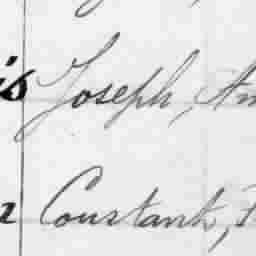 is Joseph, Am
Constant, F